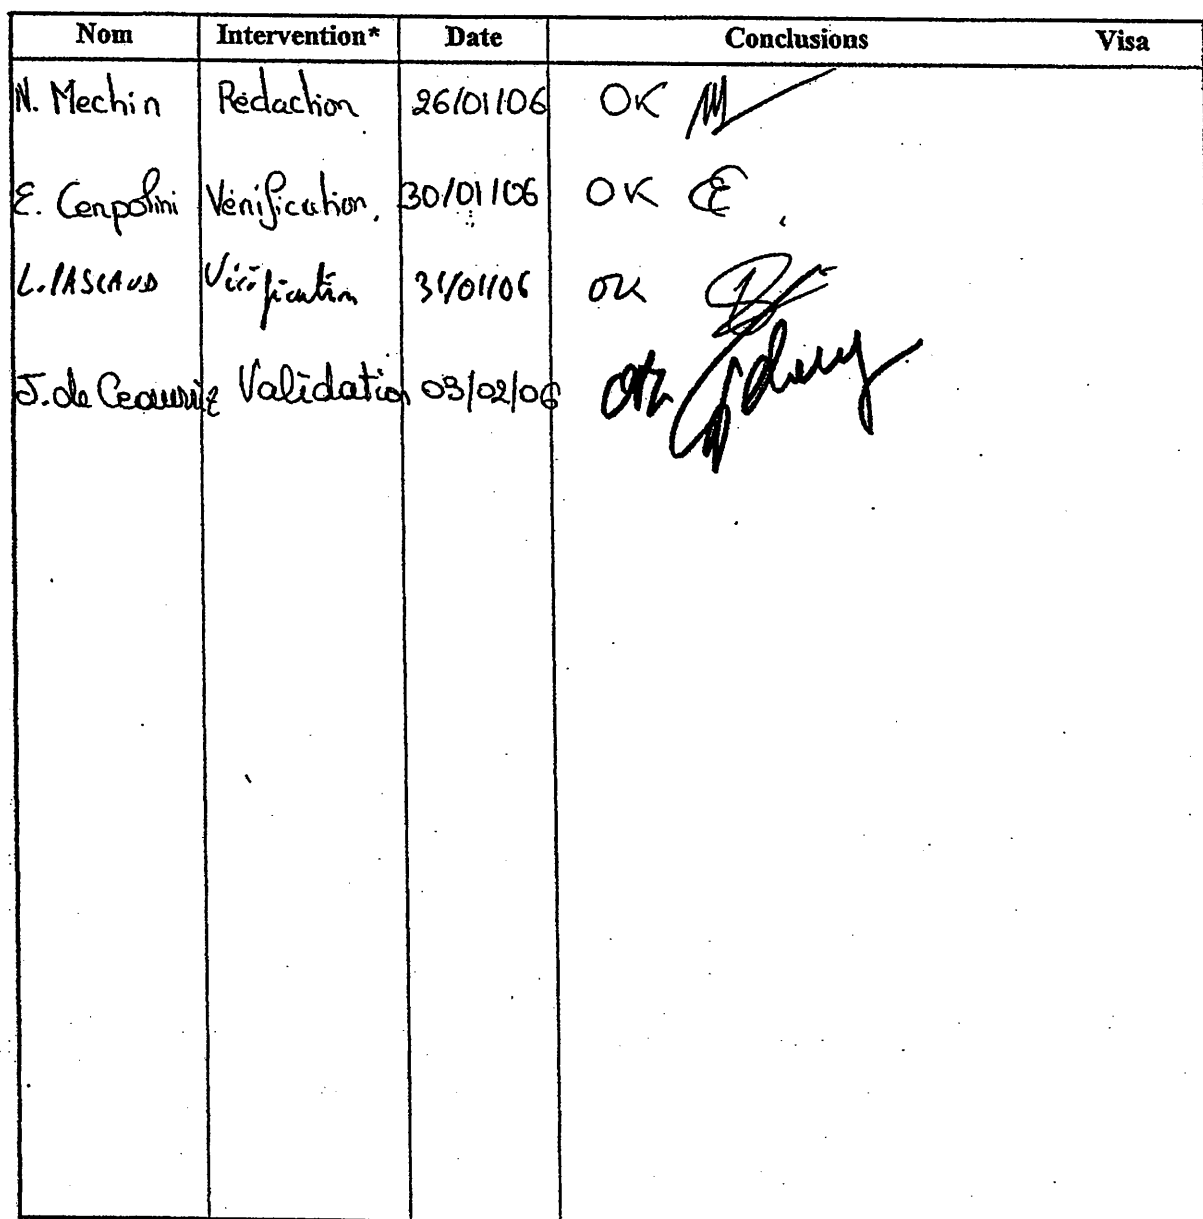 Nom Intervention* Date Conclusions Visa
N. Mechin Rédaction 26/01/06 OK
E. Cerpolini Vérification. 30/01/06 OK
L. Vérification 31/01/06 OK
J. de Ceaurriz Validation 03/02/06 OK